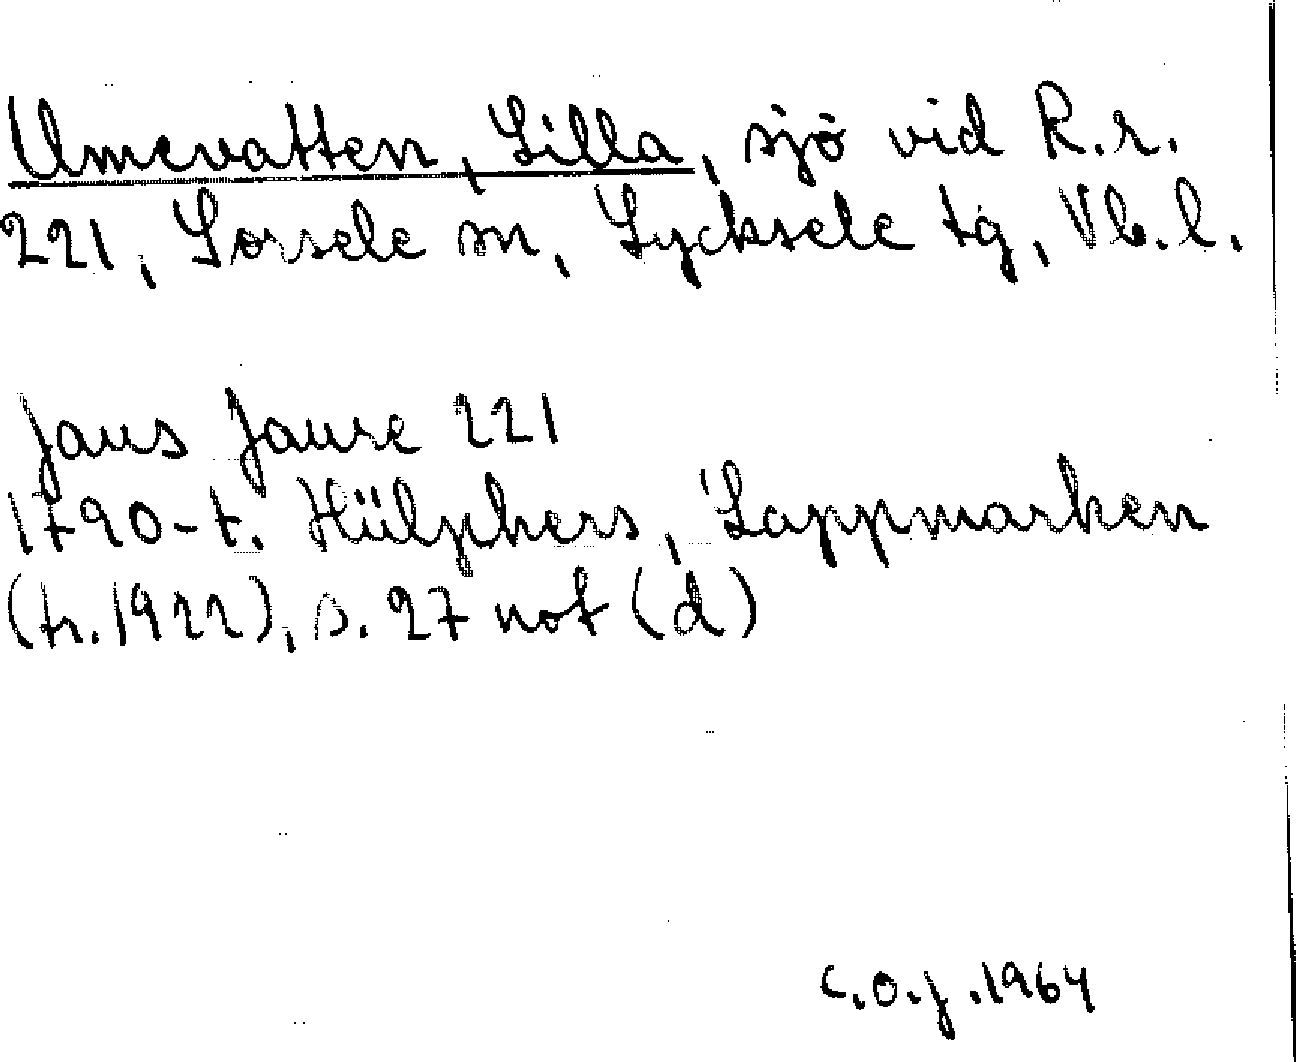 Umevatten, Lilla, sjö vid R.r.
221, Sorsele sn, Lycksele tg, Vb.l.
Jaus Jaure 221
1790-t. Hülphers, Lappmarken
(tr. 1922), s. 27 not (d)
C.O.J. 1964